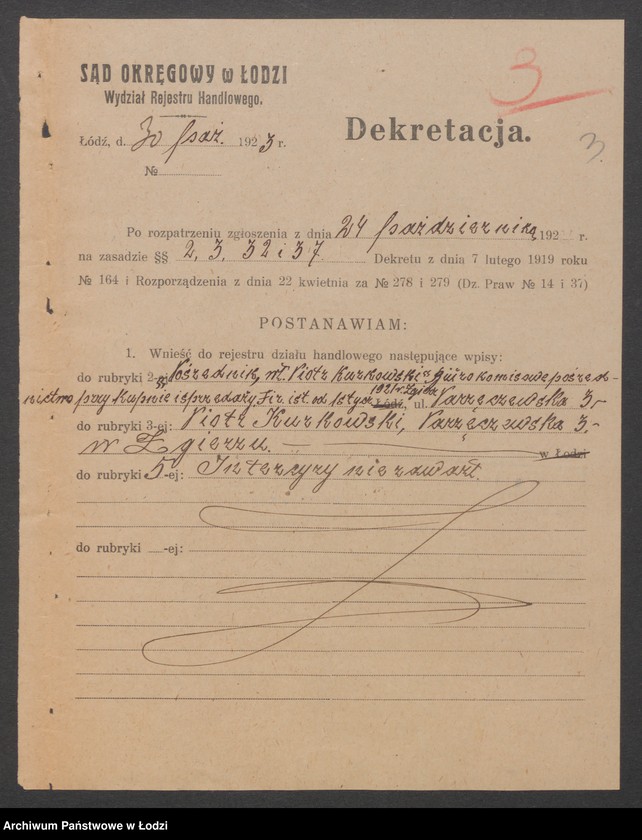 3
SĄD OKRĘGOWY w ŁODZI
Wydział Rejestru Handlowego.
Łódź, d. 30 paź. 1923 r.
Dekretacja.
3
№
Po rozpatrzeniu zgłoszenia z dnia 24 października 192 r.
na zasadzie §§ 2, 3, 32 i 37 Dekretu z dnia 7 lutego 1919 roku
№ 164 i Rozporządzenia z dnia 22 kwietnia za № 278 i 279 (Dz. Praw № 14 i 37)
POSTANAWIAM:
1. Wnieść do rejestru działu handlowego następujące wpisy:
do rubryki 2-ej „Pośrednik, wł. Piotr Kurkowski" Biuro komisowe pośred-
nictwo przy kupnie i sprzedaży. Fir. ist. od 1 stycz. 1921 r. Zgierz Łódź, ul. Parzęczewska 3.-
do rubryki 3-ej: Piotr Kurkowski, Parzęczewska 3.-
w Zgierzu. w Łodzi
do rubryki 5-ej: Intercyzy nie zawarł.
do rubryki -ej:
Archiwum Państwowe w Łodzi